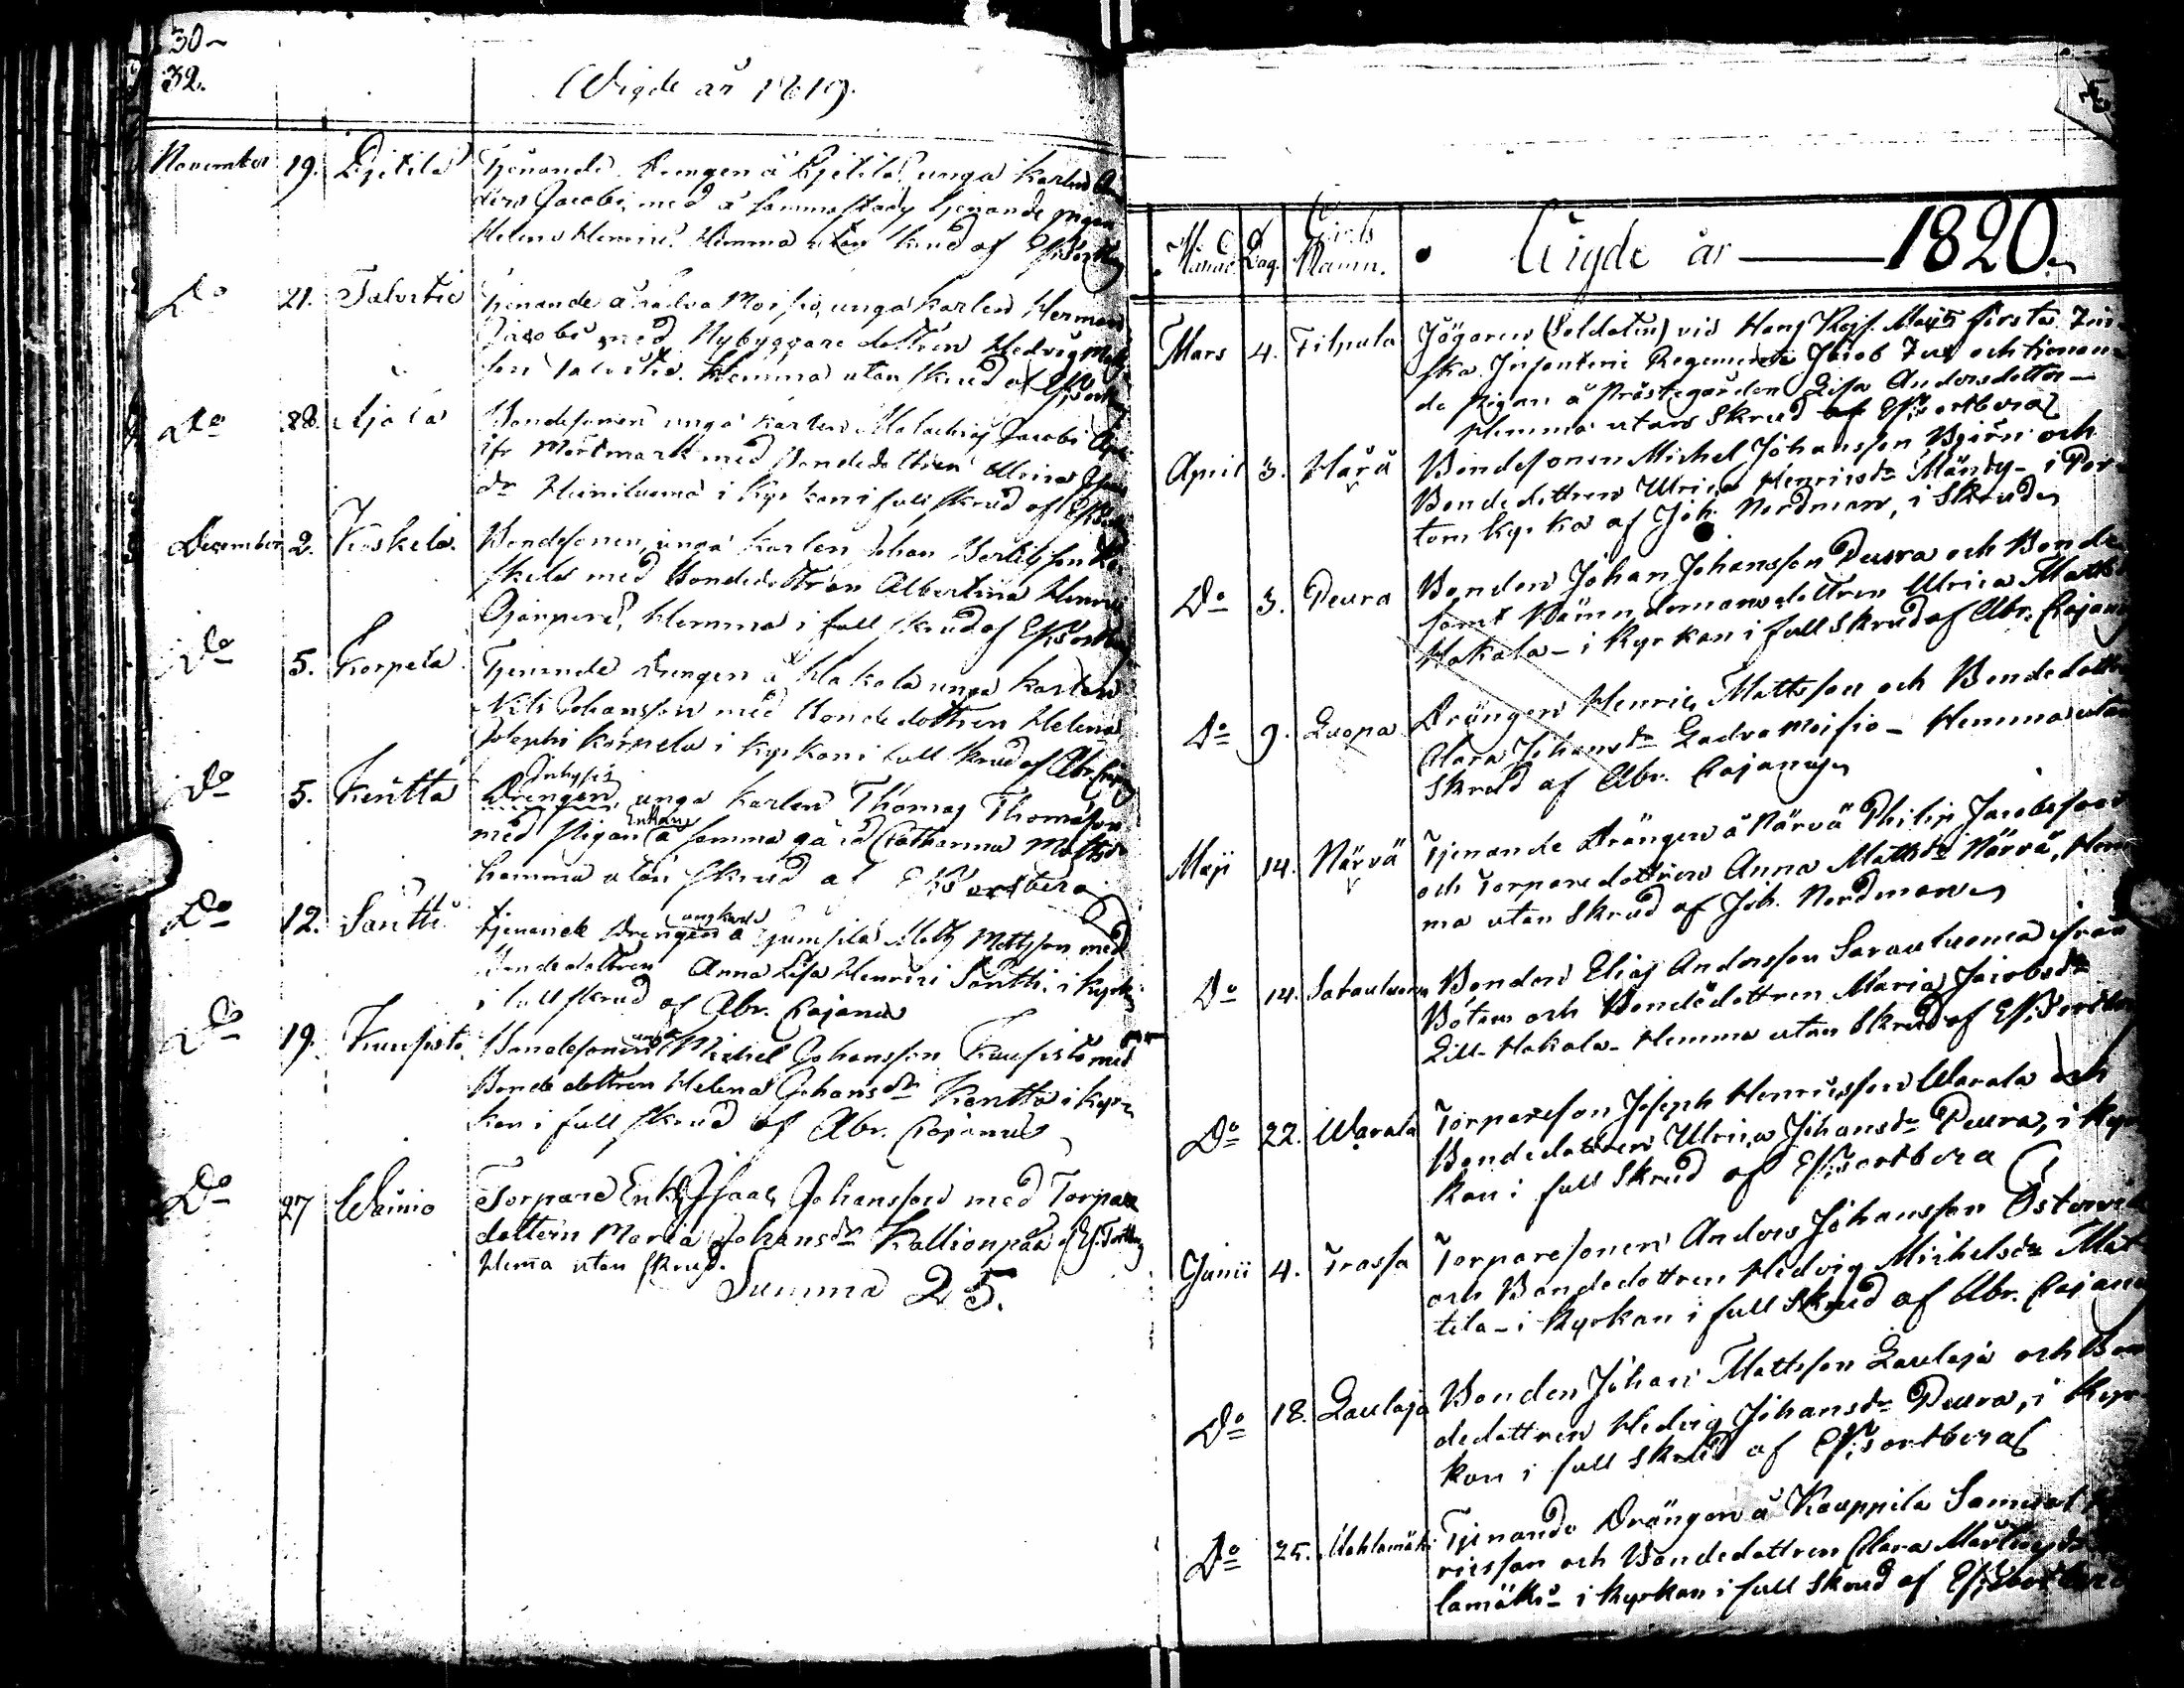 30
32.
Wigde år 1819.
November 19. Tjenande Drengen å unga Karlen An
ders Jacobi med å samma stad tjenande pigan
Helena Hemma utan skrud af Es. Bortberg
Do 21. Talvitie Tjenande å Ladva Moisio unga Karlen Herman
Jacobi med Nybyggare dottren Hedvig Matts
Talvitie. Hemma utan skrud af Es. Bortberg
Do 28. Bondesonen unga Karlen Malachias Jacobi
ifr Mörtmark med Bondedottren
dr i Kyrkan i full skrud af Es. Bortberg
December 2. Koskela Bondesonen unga Karlen Johan Ko
skela med Bondedottren Albertina Henrici
Ojanperä, Hemma i full skrud af Es. Bortberg
Do 5. Korpela Tjenande Drengen å Hakola unga Karlen
Nils Johansson med Bondedottren Helena
Josephi Korpela i Kyrkan i full skrud af Abr. Cajanus
Do 5. Kentta Inhyses
Drengen unga Karlen Thomas Thomasson
med Pigan Enkan å samma gård Catharina Mattsdr
hemma utan skrud af Es. Bortberg
Do 12. Säntti tjenande Drengen ungkarl å Matts Mattsson med
Bondedottren Anna Lisa Henrici Säntti, i Kyrkan
i full skrud af Abr. Cajanus
Do 19. Kuusisto Bondesonen unga Michel Johansson Kuusisto med
Bondedottren Helena Johansdr Kentta i Kyr
kan i full skrud af Abr. Cajanus
Do 27 Wainio Torpare Enkl. Isaac Johansson med Torpare
dottern Maria Johansdr Kallionpää af Es. Bortberg
Hema utan skrud.
Summa 25.
Månad Dag. Gårds Namn. Wigde år 1820.
Mars 4. Filpula Jägaren (Soldaten) vid Hans Kejs. Maj:ts första Fin
ska Infanterie Regemente Jacob Tur och tjenan
de Pigan å Prästegården Lisa Andersdotter
Hemma utan Skrud af Es. Bortberg
April 3. Harå Bondesonen Michel Johansson Björn och
Bondedottren Ulrica Henricsdr Mändy - i Por
tom Kyrka af Joh. Nordman, i Skrud
Do 3. Peura Bonden Johan Johansson Peura och Bonde
samt Nämndemansdottren Ulrica Matts
Hakala - i Kyrkan i full Skrud af Abr. Cajanus
Do 9. Luopa Drängen Henric Mattsson och Bondedottren
Clara Johansdr Ladva Moisio - Hemma utan
Skrud af Abr. Cajanus
Maji 14. Närvä Tjenande Drängen å Närvä Philip Jacobsson
och Torparedottren Anna Mattsdr Närvä, Hem
ma utan Skrud af Joh. Nordman
Do 14. Sarauluoma Bonden Elias Andersson Sarauluoma ifrån
Bötom och Bondedottren Maria Jacobsdr
Lill-Hakala - Hemma utan Skrud af Es. Bortberg
Do 22. Warala Torpareson Joseph Henricsson Warala och
Bondedottren Ulrica Johansdr Peura, i Kyr
kan i full Skrud af Es. Bortberg
Junii 4. Frassa Torparesonen Anders Johansson Östervik
och Bondedottren Hedvig Michelsdr Mat
tila - i Kyrkan i full Skrud af Abr. Cajanus
Do 18. Laulaja Bonden Johan Mattsson Laulaja och Bon
dedottren Hedvig Johansdr Peura, i Kyr
kan i full Skrud af Es. Bortberg
Do 25. Mahlamäki Tjenande Drängen å Kauppila Samuel
ricsson och Bondedottren Clara
lamäki - i Kyrkan i full Skrud af Es. Bortberg